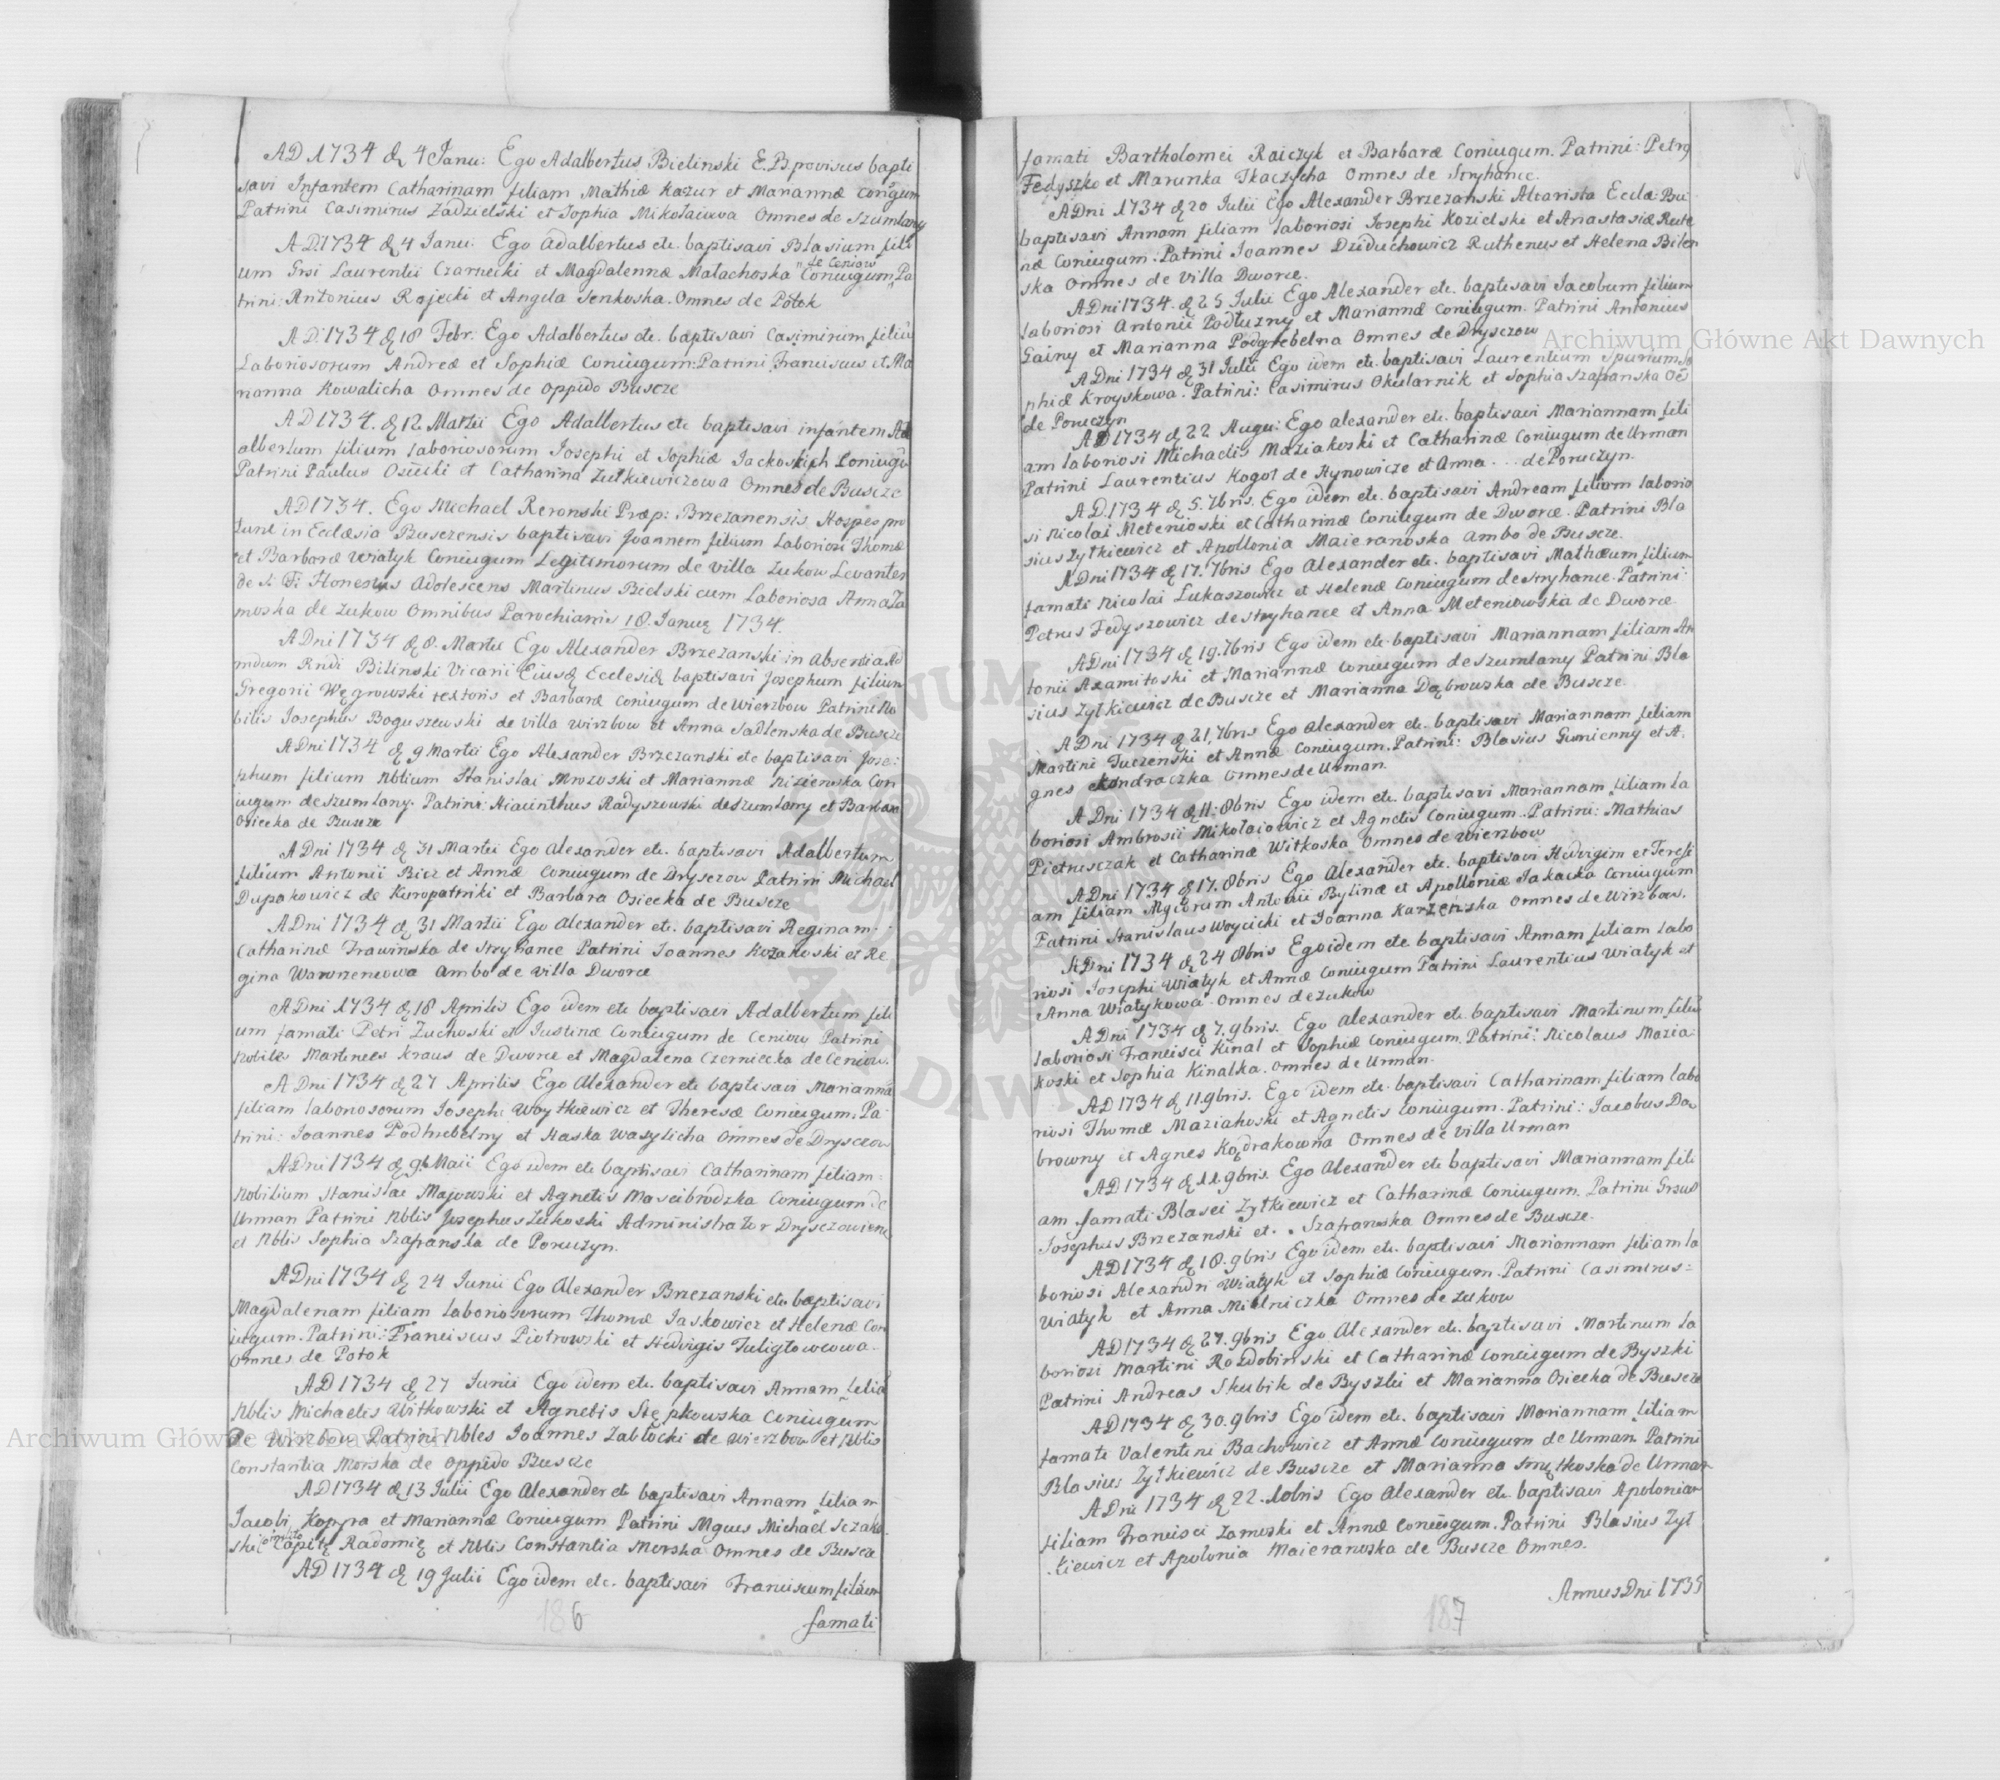 AD 1734 d 4 Janu: Ego Adalbertus Bielinski E. B. provisus bapti
savi Infantem Catharinam filiam Mathiæ Kazur et Mariannæ congum
Patrini Casimirus Zadzielski et Sophia Mikołaiowa Omnes de Szumlany
A D 1734 d 4 Janu: Ego Adalbertus etc. baptisavi Blasium fili
um Grsi Laurentii Czarnecki et Magdalennæ Małachoska de Ceniow Coniugum Pa
trini: Antonius Rojecki et Angela Senkoska. Omnes de Potok
A D. 1734 d 18 Febr. Ego Adalbertus etc. baptisavi Casimirum filiū
Laboriosorum Andreæ et Sophiæ Coniugum: Patrini Franciscus et Ma
rianna Kowalicha Omnes de Oppido Buscze
A D 1734. d 12 Martii Ego Adalbertus etc baptisavi infantem Ad
albertum filium laboriosorum Josephi et Sophiæ Jackoskich Coniugū
Patrini Paulus Osiecki et Catharina Zutkiewiczowa Omnes de Buscze
AD 1734. Ego Michael Reronski Præp: Brzezanensis Hospes pro
tunc in Ecclæsia Busczensis baptisavi Joannem filium Laboriosi Thomæ
et Barboræ Wiatyk Coniugum Legitimorum de villa Zukow Levantes
de S. F: Honestus Adolescens Martinus Bielski cum Laboriosa Anna Za
moska de Zukow Omnibus Parochianis 18. Janua 1734.
A Dni 1734 d 8. Martii Ego Alexander Brzezanski in absentia Ad
mdum Rndi Bilinski Vicarii Eiusd Ecclesiæ baptisavi Josephum filium
Gregorii Węgrowski textoris et Barbaræ Coniugum de Wierzbow Patrini No
bilis Josephus Boguszewski de villa Wirzbow et Anna Sadlenska de Buscze
A Dni 1734 d 9 Martii Ego Alexander Brzezanski etc baptisavi Jose:
phum filium Nblium Stanislai Mrozoski et Mariannæ Niziemska Con
iugum de Szumlany. Patrini: Hiacinthus Radyszowski de Szumlany et Barbara
Osiecka de Buscze
A Dni 1734 d 31 Martii Ego Alexander etc. baptisavi Adalbertum
filium Antonii Bicz et Annæ Coniugum de Dryszczow Patrini Michael
Dupakowicz de Kuropatniki et Barbara Osiecka de Buscze
A Dni 1734 d 31 Martii Ego Alexander etc. baptisavi Reginam
Catharinæ Trawinska de Stryhance Patrini Joannes Kozakoski et Re
gina Wawrzencowa Ambo de Villa Dworce
A Dni 1734 d 18 Aprilis Ego idem etc baptisavi Adalbertum fili
um famati Petri Zuchoski et Justinæ Coniugum de Ceniow Patrini
Nobiles Martinus Kraus de Dworce et Magdalena Czerniecka de Ceniow.
A Dni 1734 d 27 Aprilis Ego Alexander etc baptisavi Mariannā
filiam laboriosorum Josephi Woytkiewicz et Theresæ Coniugum. Pa
trini: Joannes Podhrebelny et Haska Wasylicha Omnes de Dryszczow
A Dni 1734 d 9 Maii Ego idem etc baptisavi Catharinam filiam
Nobilium Stanislai Majowski et Agnetis Moscibrodzka Coniugum de
Urman Patrini Nblis Josephus Zukoski Administrator Dryszczowiens
et Nblis Sophia Szafranska de Poruczyn.
A Dni 1734 d 24 Junii Ego Alexander Brzezanski etc baptisavi
Magdalenam filiam laboriosorum Thomæ Jaskowicz et Helenæ Con
iugum. Patrini: Franciscus Piotrowski et Hedvigis Tuligłowcowa
Omnes de Potok
AD 1734 d 27 Junii Ego idem etc. baptisavi Annam filiā
Nblis Michaelis Witkowski et Agnetis Stępkowska Coniugum
De Wirzbow Patrini Nbles Joannes Zabłocki de Wierzbow et Nblis
Constantia Morska de Oppido Buscze
AD 1734 d 13 Julii Ego Alexander etc baptisavi Annam filiam
Jacobi Koppa et Mariannæ Coniugum Patrini Mgnus Michael Sczako
ski Capit Radomię et Nblis Constantia Morska Omnes de Buscze
AD 1734 d 19 Julii Ego idem etc. baptisavi Franciscum filium
famati
186
famati Bartholomei Raiczyk et Barbaræ Coniugum. Patrini: Petrus
Fedyszko et Marunka Tkaczycha Omnes de Stryhance.
A Dni 1734 d 20 Julii Ego Alexander Brzezanski Altarista Ecclæ: Bu:
baptisavi Annam filiam laboriosi Josephi Kozielski et Anastasiæ Ruthe
næ Coniugum: Patrini Joannes Dziduchowicz Ruthenus et Helena Bilen
ska Omnes de Villa Dworce.
A Dni 1734. d 25 Julii Ego Alexander etc. baptisavi Jacobum filium
laboriosi Antonii Podłuzny et Mariannæ Coniugum. Patrini Antonius
Gainy et Marianna Podgrebelna Omnes de Dryszczow
A Dni 1734 d 31 Julii Ego idem etc. baptisavi Laurentium spurium So
phiæ Kroyskowa. Patrini: Casimirus Okularnik et Sophia Szafranska Oēs
de Poruczyn
A D 1734 d 22 Augu: Ego Alexander etc. baptisavi Mariannam fili
am laboriosi Michaelis Maziakoski et Catharinæ Coniugum de Urman
Patrini Laurentius Kogoł de Hynowicze et Anna ... de Poruczyn.
A D. 1734 d 5. 7bris. Ego idem etc. baptisavi Andream filium laborio
si Nicolai Metenioski et Catharinæ Coniugum de Dworce. Patrini Bla
sius Zytkiewicz et Apollonia Maieranoska Ambo de Buscze.
A Dni 1734 d 17. 7bris Ego Alexander etc. baptisavi Mathæum filium
famati Nicolai Lukaszowicz et Helenæ Coniugum de Stryhance. Patrini:
Petrus Fedyszowicz de Stryhance et Anna Meteniowska de Dworce
A Dni 1734 d 19. 7bris Ego idem etc. baptisavi Mariannam filiam An
tonii Axamitoski et Mariannæ Coniugum de Szumlany Patrini Bla
sius Zytkiewicz de Buscze et Marianna Dąbrowska de Buscze.
A Dni 1734 d 21. 7bris Ego Alexander etc. baptisavi Mariannam filiam
Martini Tuczenski et Annæ Coniugum. Patrini: Blasius Gumienny et A.
gnes Kondraczka Omnes de Urman.
A Dni 1734 d 11: 8bris Ego idem etc. baptisavi Mariannam filiam la
boriosi Ambrosii Mikołaiowicz et Agnetis Coniugum. Patrini: Mathias
Pietrusczak et Catharina Witkoska Omnes de Wierzbow
A Dni 1734 d 17. 8bris Ego Alexander etc. baptisavi Hedvigim et Teresi
am filiam Mgcorum Antonii Bylinæ et Apolloniæ Jakacka Coniugum
Patrini Stanislaus Woycicki et Joanna Karzenska Omnes de Wirzbow.
A Dni 1734 d 24 8bris Ego idem etc baptisavi Annam filiam labo
riosi Josephi Wiatyk et Annæ Coniugum Patrini Laurentius Wiatyk et
Anna Wiatykowa. Omnes de Zukow
A Dni 1734 d 7. 9bris. Ego Alexander etc. baptisavi Martinum filiū
laboriosi Francisci Kinal et Sophiæ Coniugum. Patrini: Nicolaus Mazia:
koski et Sophia Kinalka. Omnes de Urman.
A D 1734 d 11. 9bris. Ego idem etc. baptisavi Catharinam filiam labo
riosi Thomæ Maziakoski et Agnetis Coniugum. Patrini: Jacobus Do
browny et Agnes Kądrakowna Omnes de Villa Urman
AD 1734 d 11. 9bris. Ego Alexander etc baptisavi Mariannam fili
am famati Blasei Zytkiewicz et Catharinæ Coniugum. Patrini Grsus
Josephus Brzezanski et . . Szafranska Omnes de Buscze.
AD 1734 d 18. 9bris Ego idem etc. baptisavi Mariannam filiam la
boriosi Alexandri Wiatyk et Sophiæ Coniugum. Patrini Casimirus
Wiatyk et Anna Mielniczka Omnes de Zukow
AD 1734 d 27. 9bris Ego Alexander etc. baptisavi Martinum la
boriosi Martini Rozdobinski et Catharinæ Coniugum de Byszki
Patrini Andreas Skubik de Byszki et Marianna Osiecka de Buscze
AD 1734 d 30. 9bris Ego idem etc. baptisavi Mariannam filiam
famati Valentini Bachowicz et Annæ Coniugum de Urman Patrini
Blasius Zytkiewicz de Buscze et Marianna Smytkoska de Urman
A Dni 1734 d 22. 10bris Ego Alexander etc. baptisavi Apoloniam
filiam Francisci Zamoski et Annæ Coniugum. Patrini Blasius Zyt
kiewicz et Apolonia Maieranoska de Buscze Omnes.
Annus Dni 1735
187
Archiwum Główne Akt Dawnych
Archiwum Główne Akt Dawnych